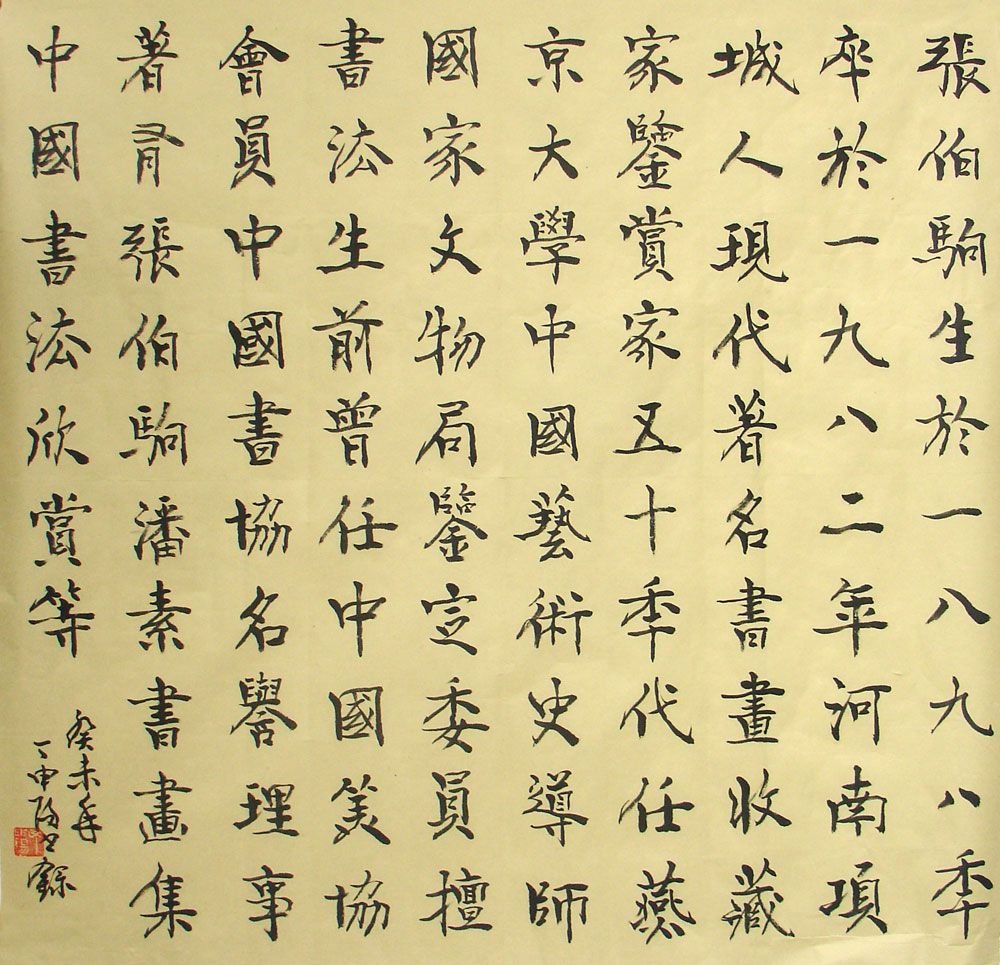 張伯駒生於一八九八秊
卒於一九八二年河南項
城人現代著名書畫收藏
家鑒賞家五十秊代任燕
京大學中國藝術史導師
國家文物局鑒定委員擅
書法生前曾任中國美協
會員中國書協名譽理事
著有張伯駒潘素書畫集
中國書法欣賞等
癸未年